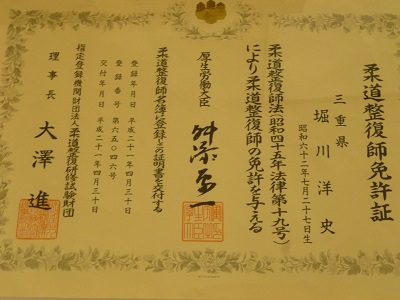 柔道整復師免許証
三重県
堀川洋史
昭和六十二年七月二十七日生
柔道整復師法(昭和四十五年法律第十九号)
により柔道整復師の免許を与える
厚生労働大臣
舛添要一
柔道整復師名簿に登録しこの証明書を交付する
登録年月日 平成二十一年四月三十日
登録番号 第六五〇四六号
交付年月日 平成二十一年四月三十日
指定登録機関財団法人柔道整復研修試験財団
理事長 大澤進